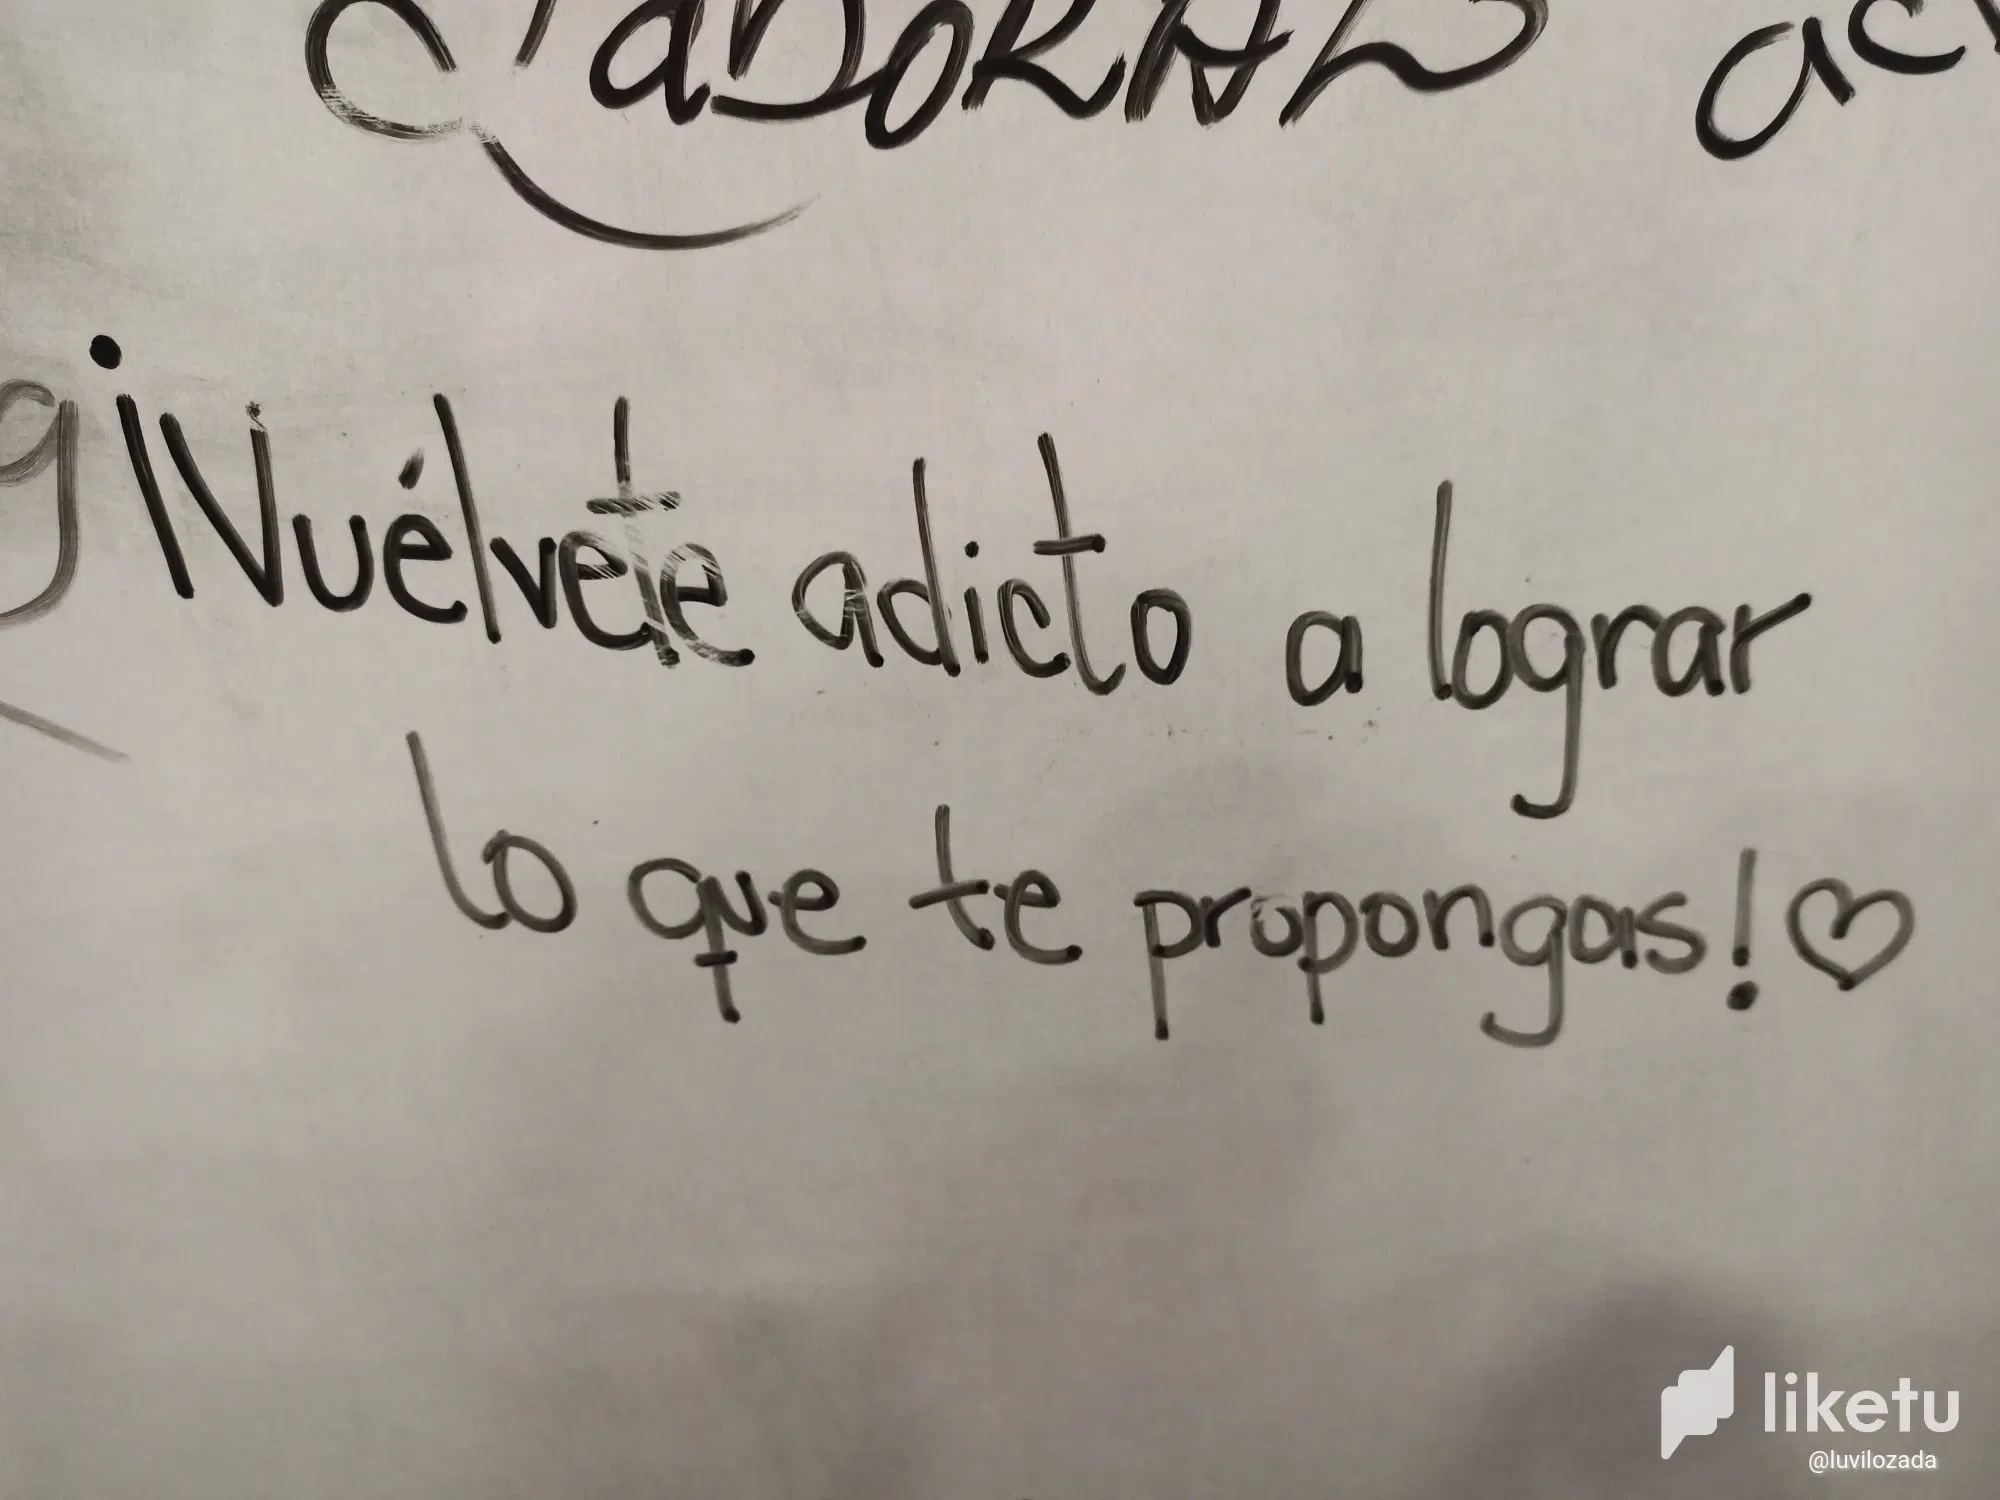 ¡Vuélvete adicto a lograr
lo que te propongas! ♡
liketu
@luvilozada